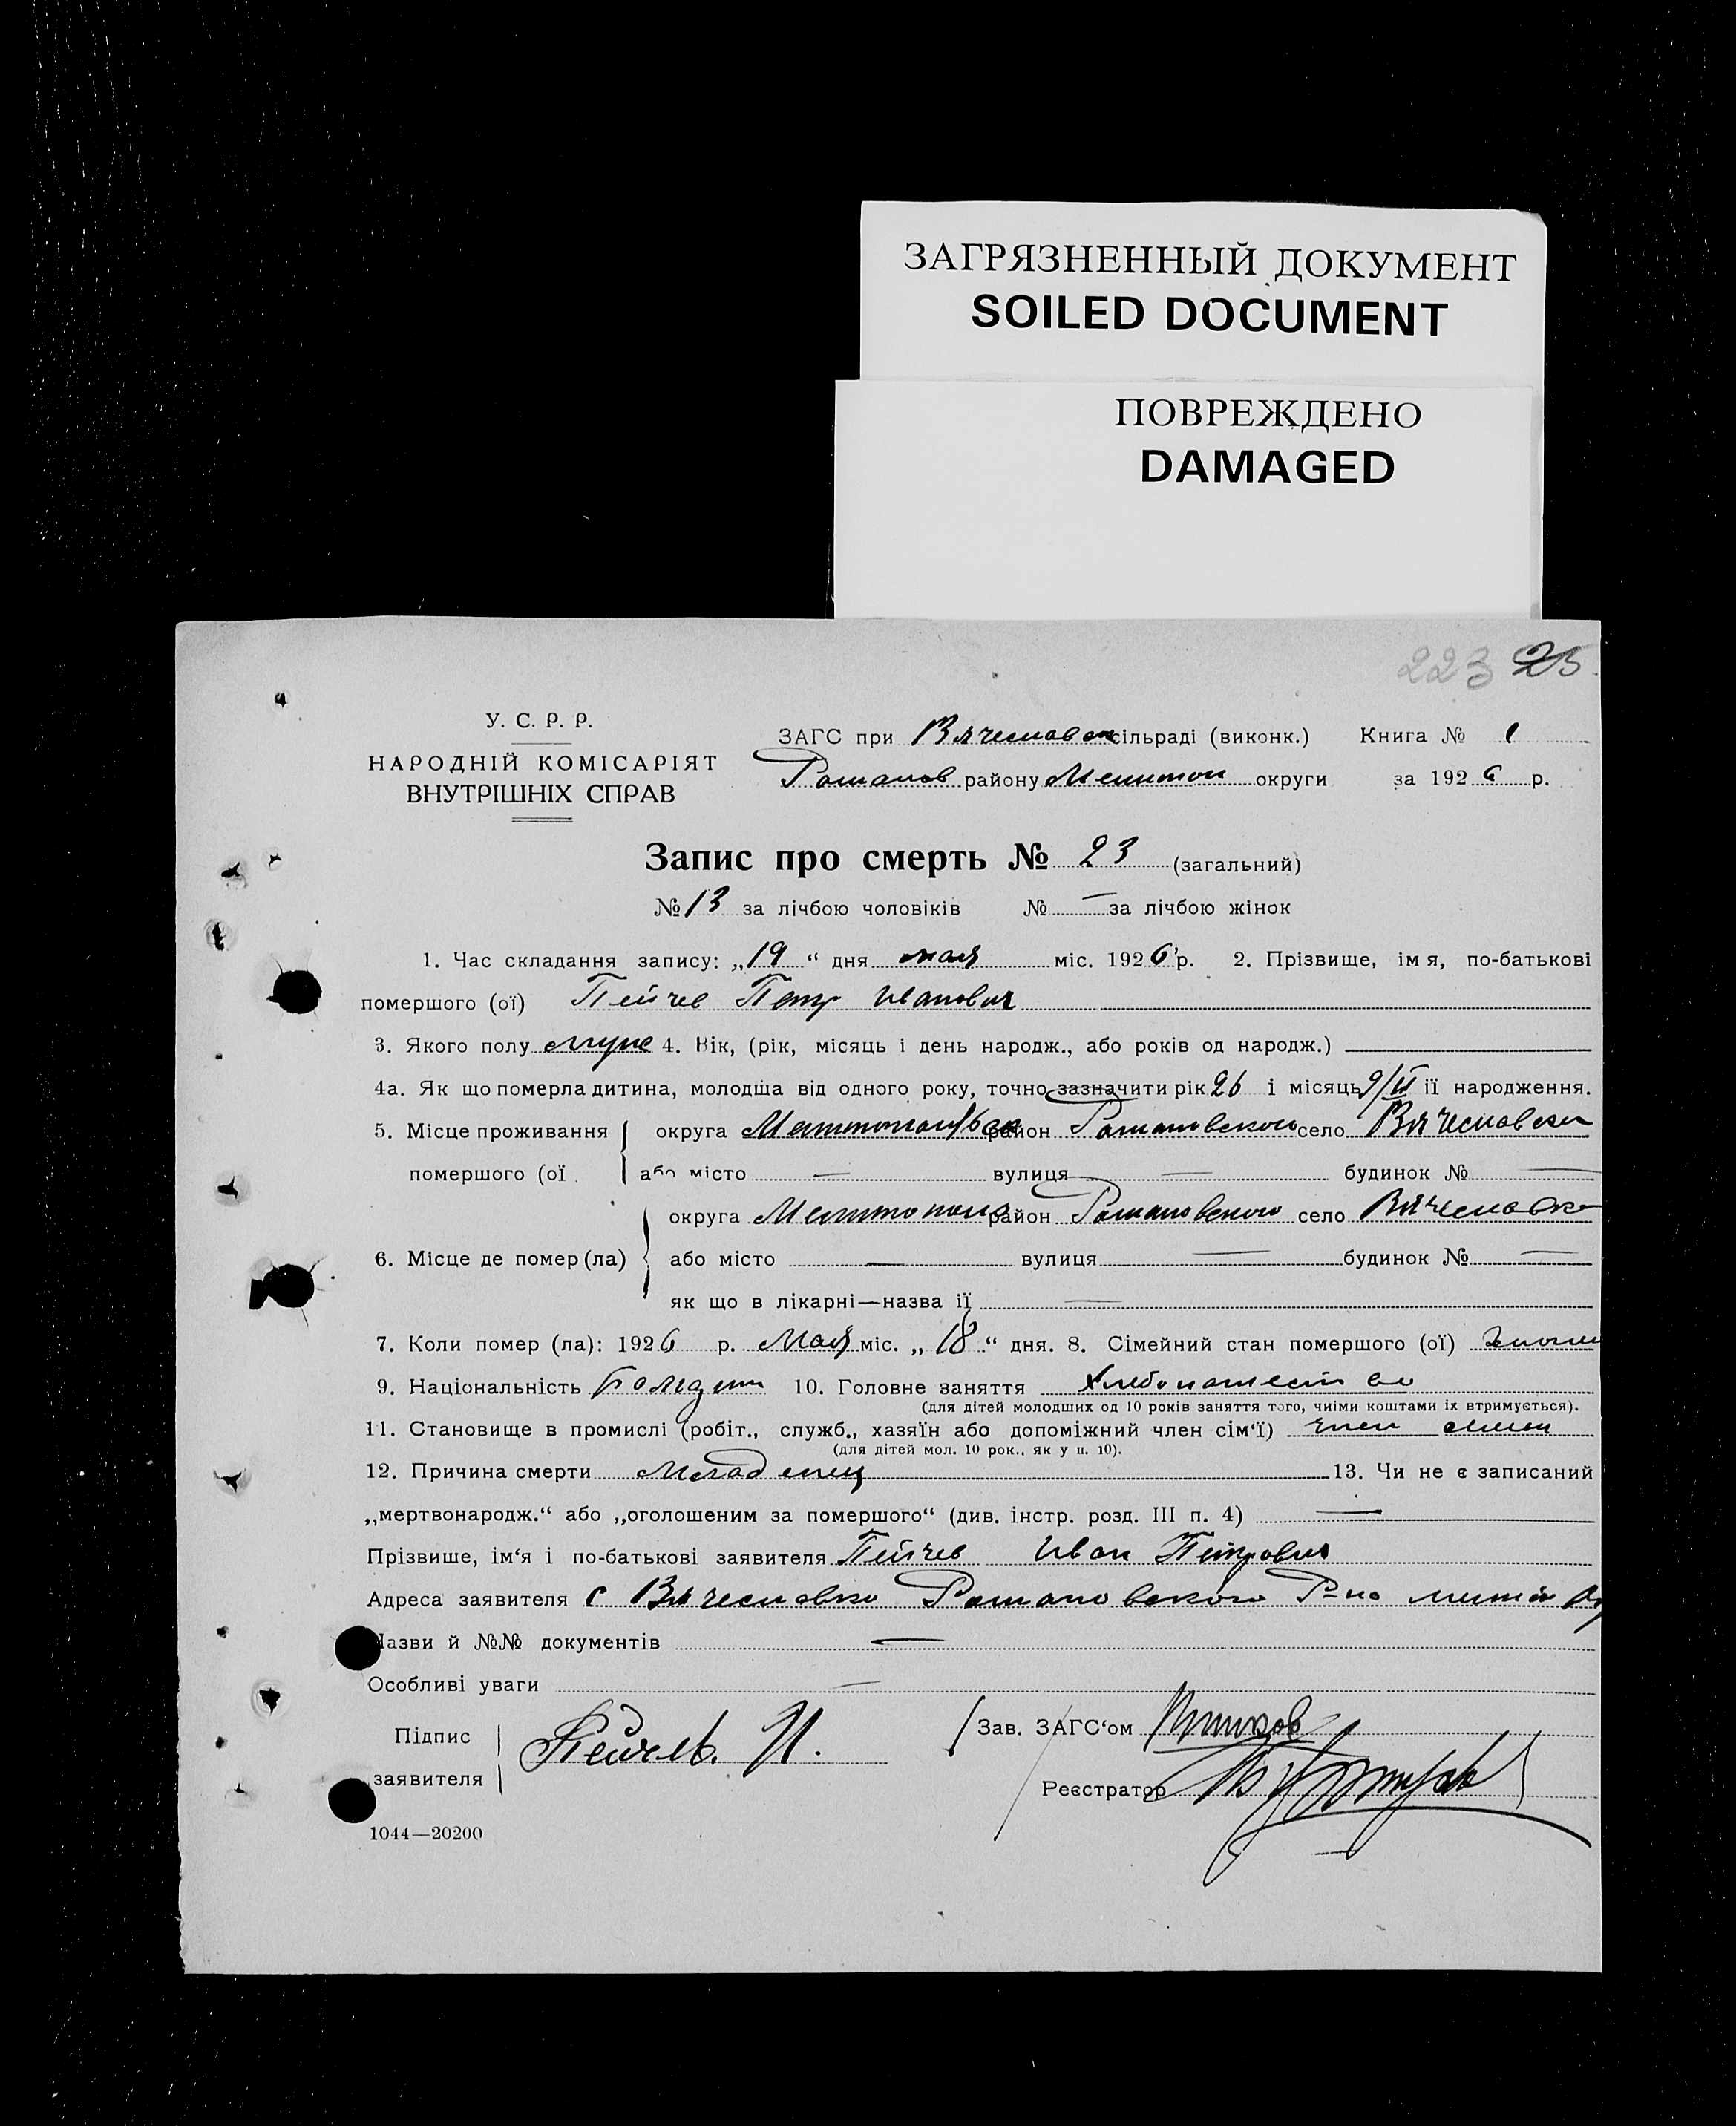 ЗАГРЯЗНЕННЫЙ ДОКУМЕНТ
SOILED DOCUMENT
ПОВРЕЖДЕНО
DAMAGED
223 25
У. С. Р. Р.
НАРОДНІЙ КОМІСАРІЯТ
ВНУТРІШНІХ СПРАВ
ЗАГС при Вячеславск сільраді (виконк.) Книга № 1
Романов району Мелитоп округи за 1926 р.
Запис про смерть № 23 (загальний)
№ 13 за лічбою чоловіків № — за лічбою жінок
1. Час складання запису: „19“ дня мая міс. 1926 р. 2. Прізвище, імя, по-батькові
помершого (ої) Пейчев Петр Иванович
3. Якого полу муж 4. Вік, (рік, місяць і день народж., або років од народж.)
4а. Як що померла дитина, молодша від одного року, точно зазначити рік 26 і місяць 9/II її народження.
5. Місце проживання округа Мелитопольск район Романовского село Вячеславки
помершого (ої або місто — вулиця — будинок № —
округа Мелитополь район Романовского село Вячеславка
6. Місце де помер (ла) або місто — вулиця — будинок № —
як що в лікарні—назва її —
7. Коли помер (ла): 1926 р. Мая міс. „18“ дня. 8. Сімейний стан помершого (ої)
9. Національність Болгарин 10. Головне заняття Хлебопашество
(для дітей молодших од 10 років заняття того, чиїми коштами їх втримується).
11. Становище в промислі (робіт., служб., хазяїн або допоміжний член сім‘ї) член семьи
(для дітей мол. 10 рок., як у п. 10).
12. Причина смерти Младенец 13. Чи не є записаний
„мертвонародж.“ або „оголошеним за помершого“ (див. інстр. розд. III п. 4) —
Прізвише, ім‘я і по-батькові заявителя Пейчев Иван Петрович
Адреса заявителя с Вячеславка Романовского Р-на мелит
Назви й №№ документів —
Особливі уваги —
Підпис Пейчев. И. Зав. ЗАГС‘ом
заявителя Реєстратор
1044—20200